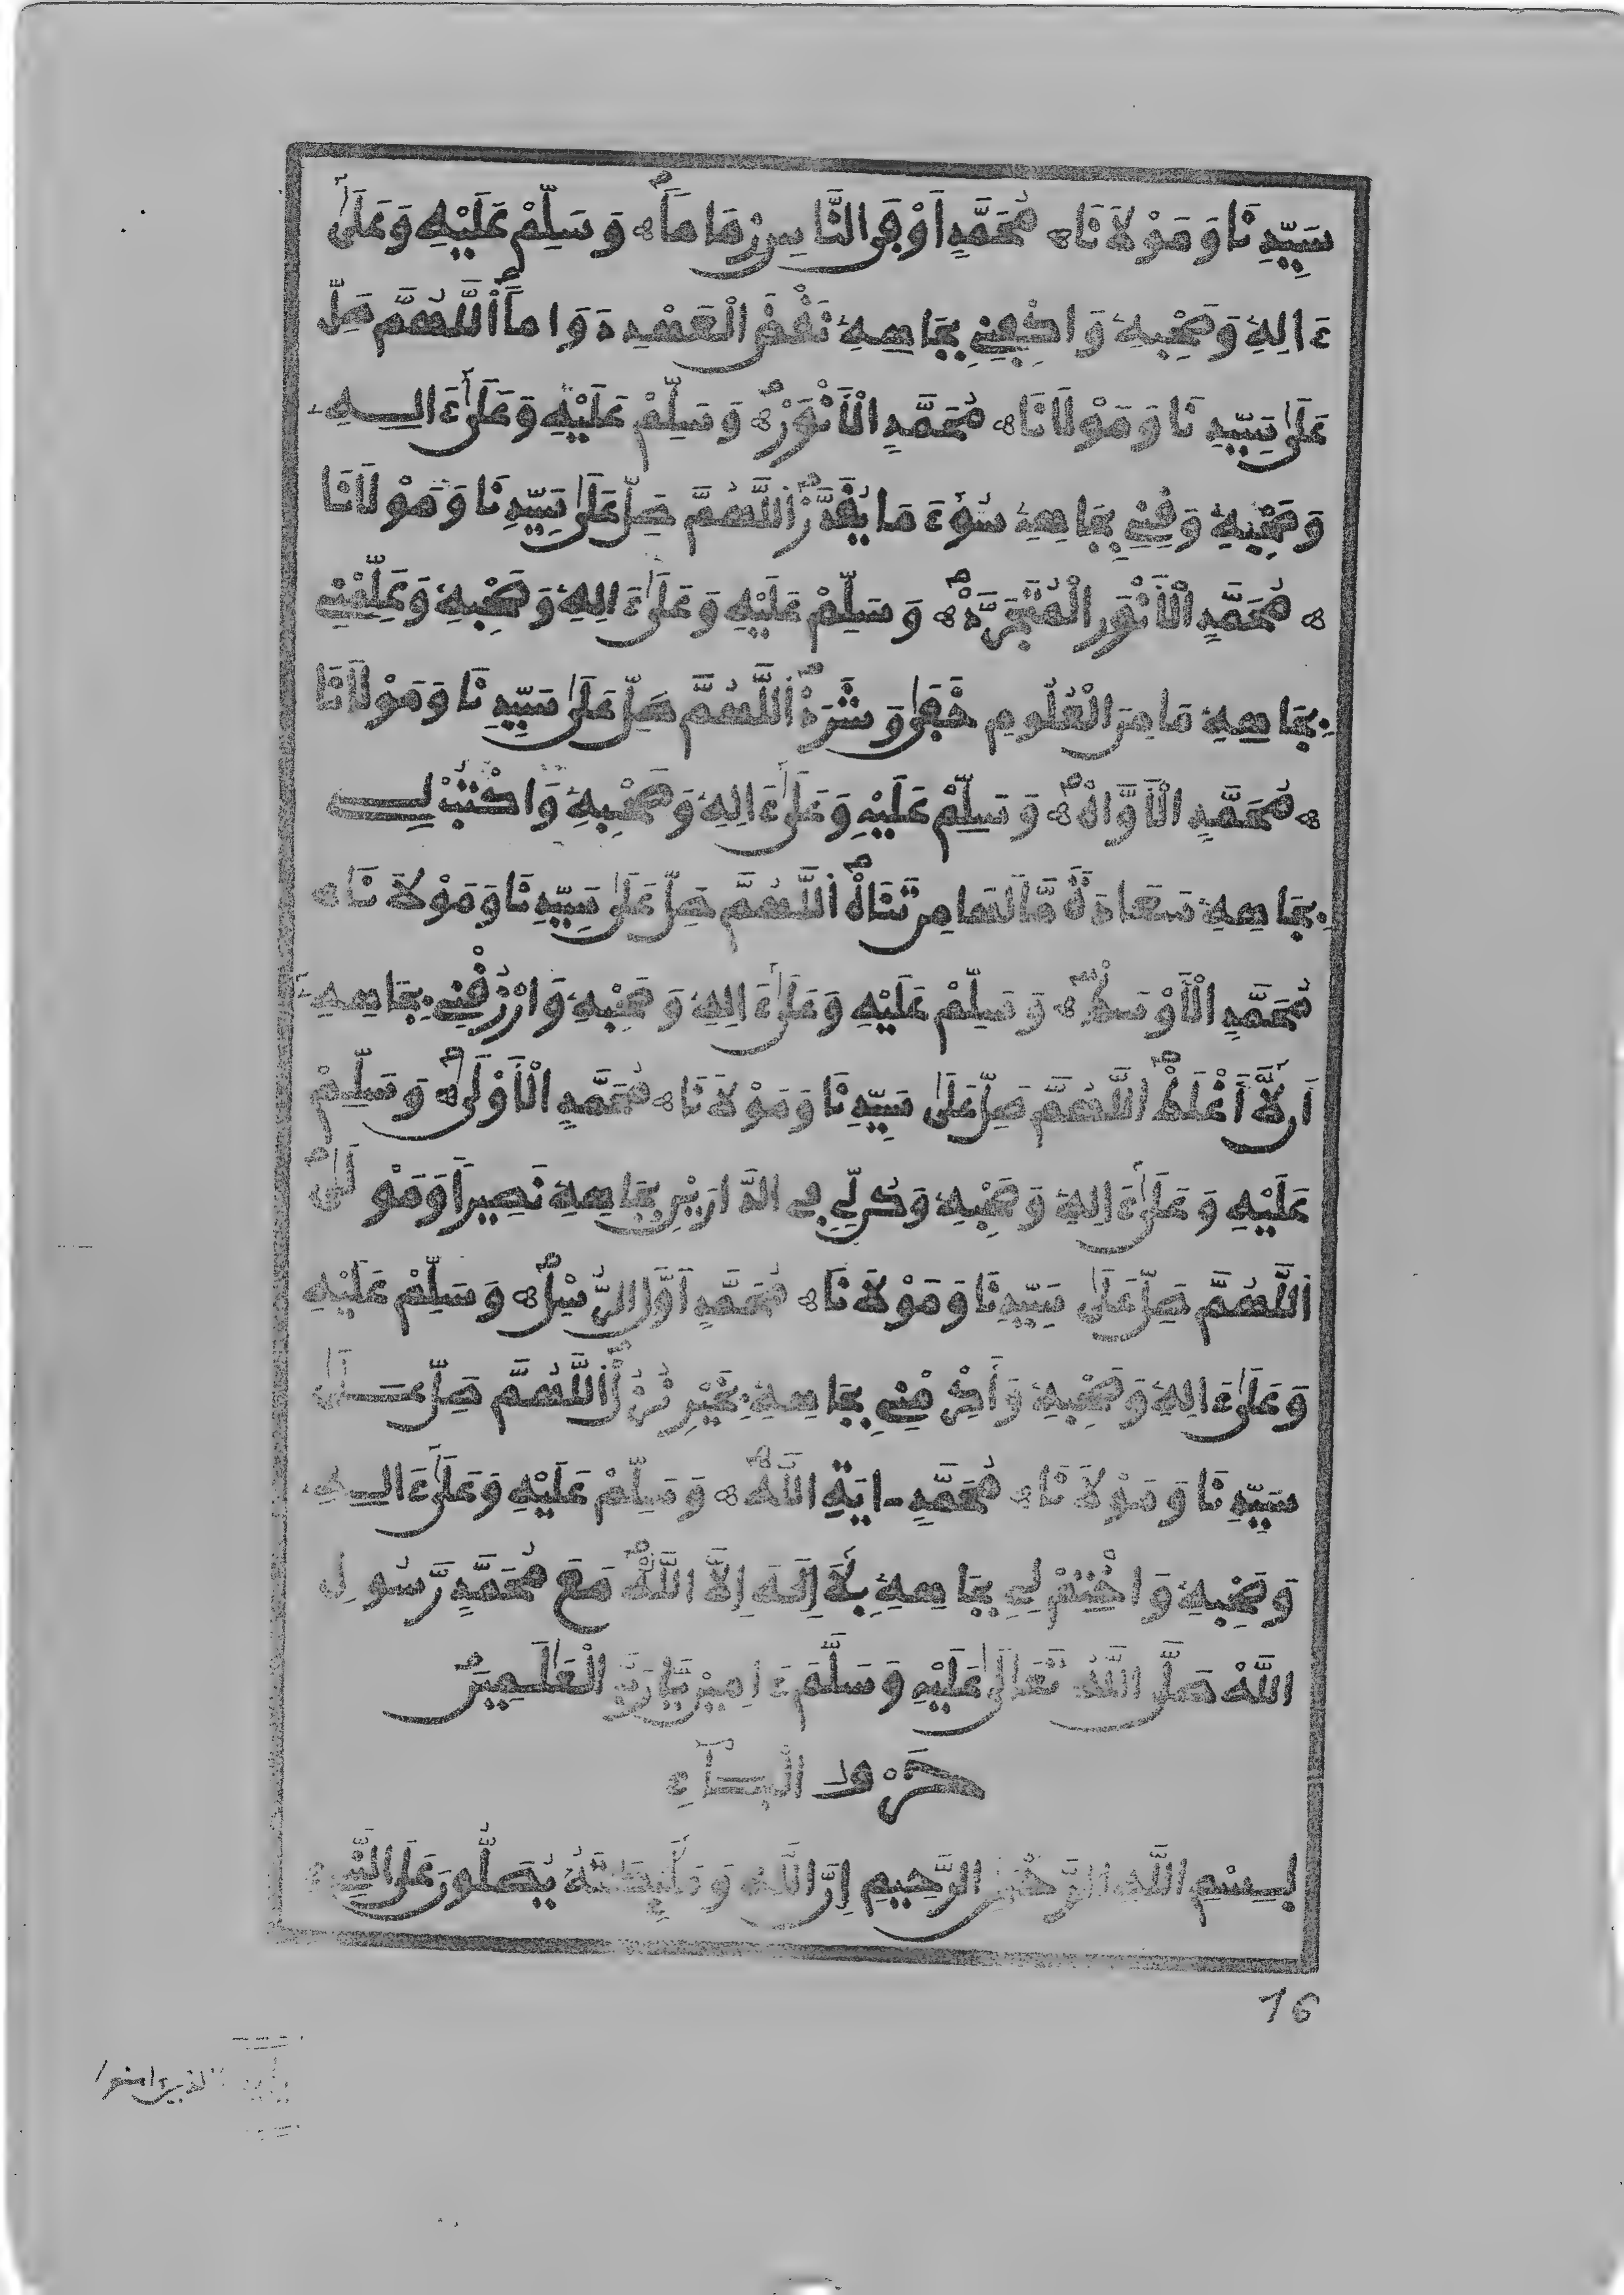 سَيِّدِنَا وَمَوْلَانَا مُحَمَّدٍ اَوْفَى النَّاسِ زِمَامَا وَسَلِّمْ عَلَيْهِ وَعَلَىٰ
ءَالِهِ وَصَحْبِهِ وَاكْفِنِي بِجَاهِهِ نَقْضَ الْعَهْدِ دَوَامَا اَللَّهُمَّ صَلِّ
عَلَىٰ سَيِّدِنَا وَمَوْلَانَا مُحَمَّدٍ الْأَنْوَرْ وَسَلِّمْ عَلَيْهِ وَعَلَىٰ ءَالِهِ
وَصَحْبِهِ وَقِنِي بِجَاهِهِ سُوءَ مَا يُقَدَّرْ اَللَّهُمَّ صَلِّ عَلَىٰ سَيِّدِنَا وَمَوْلَانَا
مُحَمَّدٍ الْأَنْوَرِ الْمُتَجَرَّدْ وَسَلِّمْ عَلَيْهِ وَعَلَىٰ ءَالِهِ وَصَحْبِهِ وَعَلِّمْنِي
بِجَاهِهِ مَا مِنَ الْعُلُومِ خَفَىٰ وَشَرَدْ اَللَّهُمَّ صَلِّ عَلَىٰ سَيِّدِنَا وَمَوْلَانَا
مُحَمَّدٍ الْأَوَّاهْ وَسَلِّمْ عَلَيْهِ وَعَلَىٰ ءَالِهِ وَصَحْبِهِ وَاكْتُبْ لِي
بِجَاهِهِ سَعَادَةً مَّا لَهَا مِن تَنَاهْ اَللَّهُمَّ صَلِّ عَلَىٰ سَيِّدِنَا وَمَوْلَانَا
مُحَمَّدٍ الْأَوْسَطْ وَسَلِّمْ عَلَيْهِ وَعَلَىٰ ءَالِهِ وَصَحْبِهِ وَارْزُقْنِي بِجَاهِهِ
أَن لَّا أَغْلَطْ اَللَّهُمَّ صَلِّ عَلَىٰ سَيِّدِنَا وَمَوْلَانَا مُحَمَّدٍ الْأَوْلَىٰ وَسَلِّمْ
عَلَيْهِ وَعَلَىٰ ءَالِهِ وَصَحْبِهِ وَكُن لِّي فِي الدَّارَيْنِ بِجَاهِهِ نَصِيراً وَمَوْلَىٰ
اَللَّهُمَّ صَلِّ عَلَىٰ سَيِّدِنَا وَمَوْلَانَا مُحَمَّدٍ اَوَّلِ الرُّسْلْ وَسَلِّمْ عَلَيْهِ
وَعَلَىٰ ءَالِهِ وَصَحْبِهِ وَأَكْرِمْنِي بِجَاهِهِ بِخَيْرِ نُزُلْ اَللَّهُمَّ صَلِّ عَلَىٰ
سَيِّدِنَا وَمَوْلَانَا مُحَمَّدٍ ايَةِ اللَّهْ وَسَلِّمْ عَلَيْهِ وَعَلَىٰ ءَالِهِ
وَصَحْبِهِ وَاخْتِمْ لِي بِجَاهِهِ بِلَا إِلَٰهَ إِلَّا اللَّهْ مَعَ مُحَمَّدٍ رَّسُولِ
اللَّهْ صَلَّى اللَّهُ تَعَالَىٰ عَلَيْهِ وَسَلَّمَ ءَامِينْ يَا رَبَّ الْعَٰلَمِينَ
حَرْفُ الْبَاءِ
بِسْمِ اللَّهِ الرَّحْمَٰنِ الرَّحِيمِ إِنَّ اللَّهَ وَمَلَٰئِكَتَهُ يُصَلُّونَ عَلَى النَّبِيءِ
16